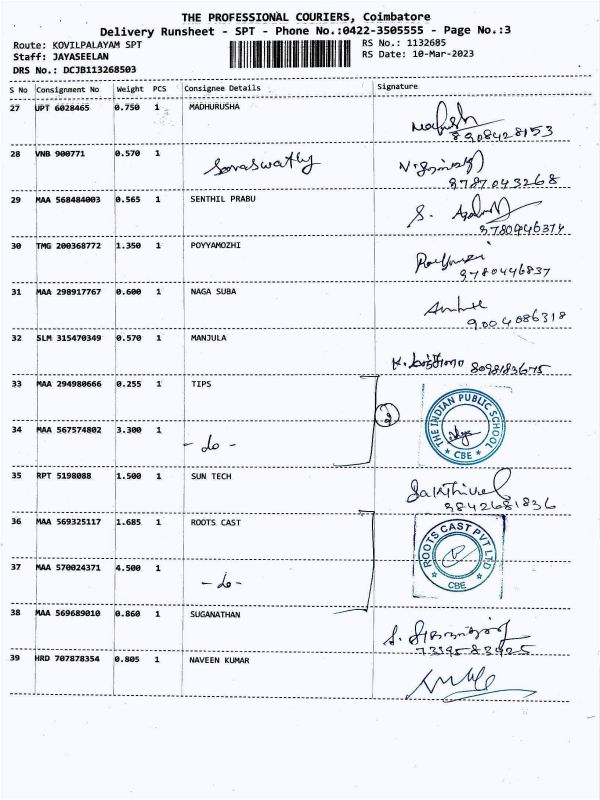 THE PROFESSIONAL COURIERS, Coimbatore
Delivery Runsheet - SPT - Phone No.:0422-3505555 - Page No.:3
Route: KOVILPALAYAM SPT
RS No.: 1132685
Staff: JAYASEELAN
RS Date: 10-Mar-2023
DRS No.: DCJB113268503
S No Consignment No Weight PCS Consignee Details Signature
27 UPT 6028465 0.750 1 MADHURUSHA
8908428153
28 VNB 900771 0.570 1 Saraswathy
8787043268
29 MAA 568484003 0.565 1 SENTHIL PRABU
9780946374
30 TMG 200368772 1.350 1 POYYAMOZHI
9780446837
31 MAA 298917767 0.600 1 NAGA SUBA
9004086318
32 SLM 315470349 0.570 1 MANJULA
8098183675
33 MAA 294980666 0.255 1 TIPS
2
THE INDIAN PUBLIC SCHOOL
CBE
34 MAA 567574802 3.300 1 - do -
35 RPT 5198088 1.500 1 SUN TECH Sakthivel
9842681836
36 MAA 569325117 1.685 1 ROOTS CAST
ROOTS CAST PVT LTD
CBE
37 MAA 570024371 4.500 1 - do -
38 MAA 569689010 0.860 1 SUGANATHAN
7339583925
39 HRD 707878354 0.805 1 NAVEEN KUMAR